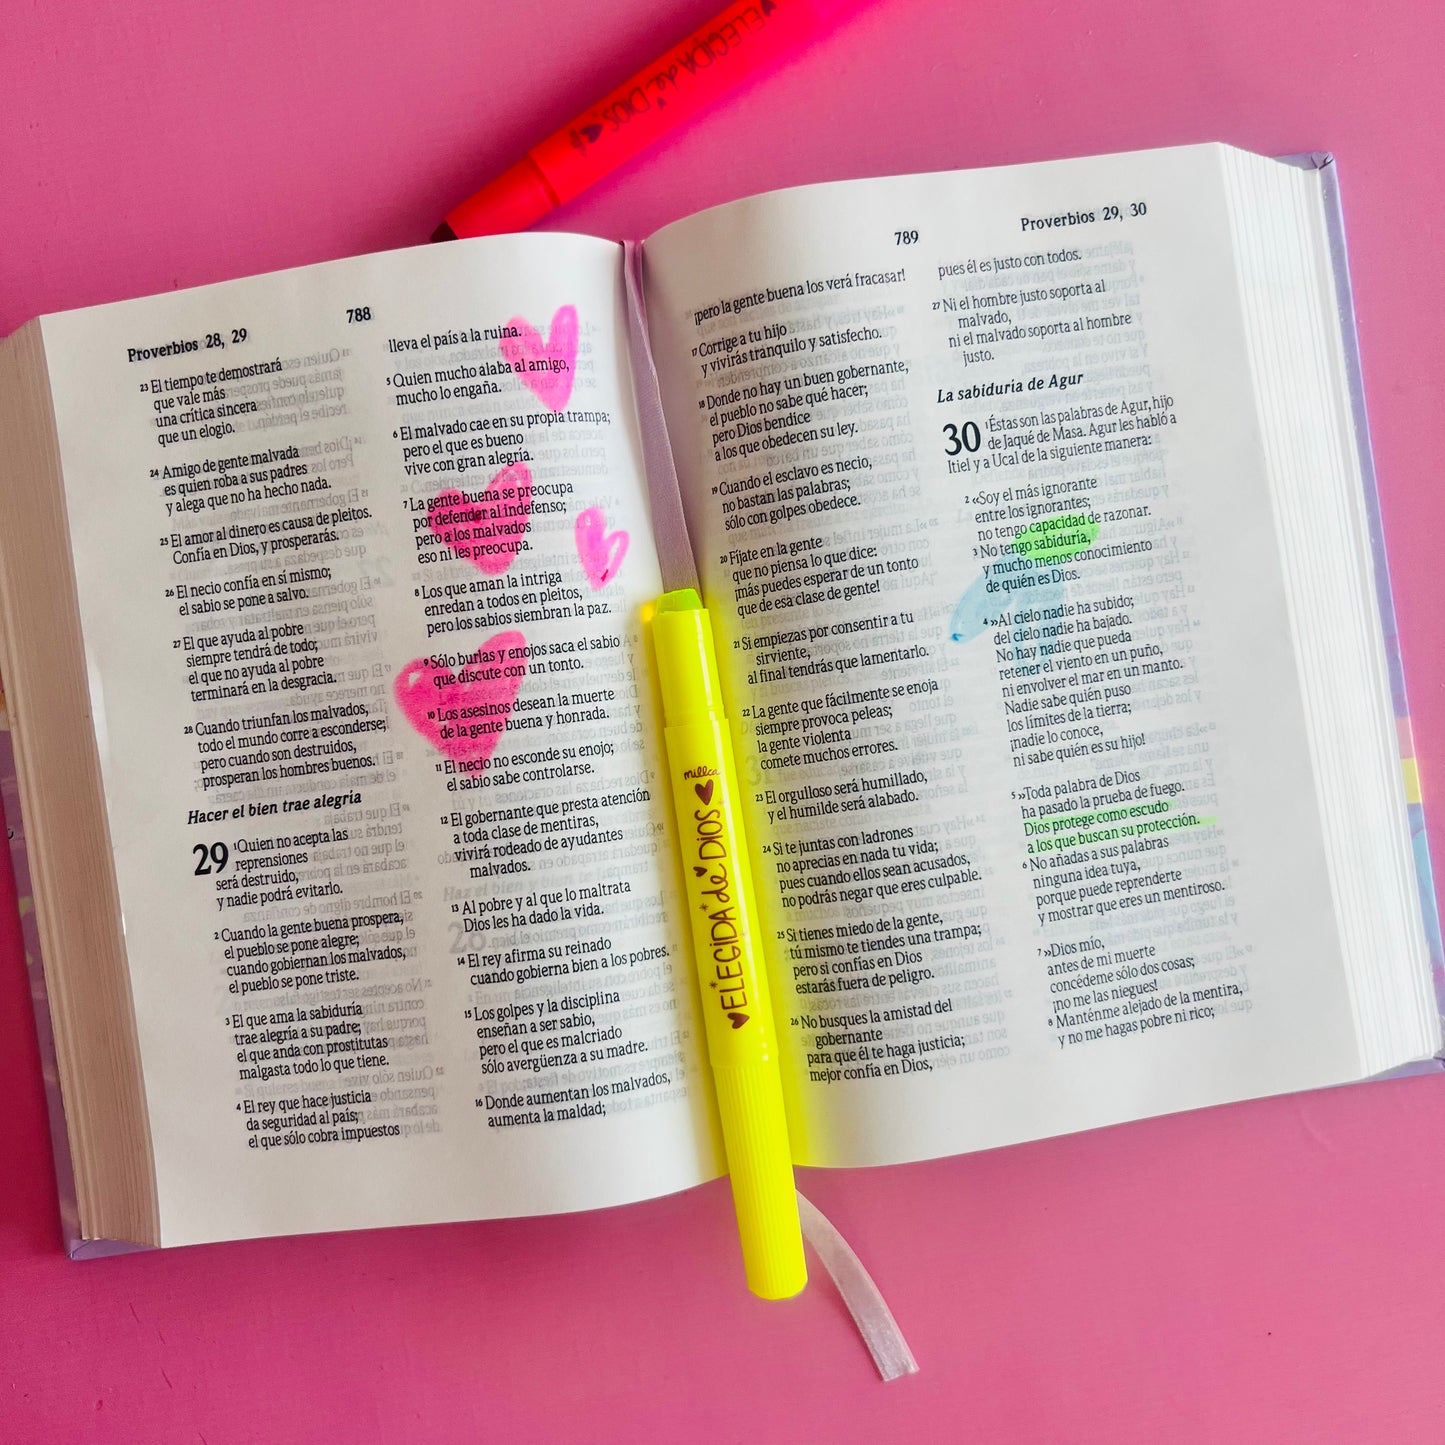 ELEGIDA de DIOS
Proverbios 28, 29
788
23 El tiempo te demostrará
que vale más
una crítica sincera
que un elogio.
24 Amigo de gente malvada
es quien roba a sus padres
y alega que no ha hecho nada.
25 El amor al dinero es causa de pleitos.
Confía en Dios, y prosperarás.
26 El necio confía en sí mismo;
el sabio se pone a salvo.
27 El que ayuda al pobre
siempre tendrá de todo;
el que no ayuda al pobre
terminará en la desgracia.
28 Cuando triunfan los malvados,
todo el mundo corre a esconderse;
pero cuando son destruidos,
prosperan los hombres buenos.
Hacer el bien trae alegría
29 1 Quien no acepta las
reprensiones
será destruido,
y nadie podrá evitarlo.
2 Cuando la gente buena prospera,
el pueblo se pone alegre;
cuando gobiernan los malvados,
el pueblo se pone triste.
3 El que ama la sabiduría
trae alegría a su padre;
el que anda con prostitutas
malgasta todo lo que tiene.
4 El rey que hace justicia
da seguridad al país;
el que sólo cobra impuestos
lleva el país a la ruina.
5 Quien mucho alaba al amigo,
mucho lo engaña.
6 El malvado cae en su propia trampa;
pero el que es bueno
vive con gran alegría.
7 La gente buena se preocupa
por defender al indefenso;
pero a los malvados
eso ni les preocupa.
8 Los que aman la intriga
enredan a todos en pleitos,
pero los sabios siembran la paz.
9 Sólo burlas y enojos saca el sabio
que discute con un tonto.
10 Los asesinos desean la muerte
de la gente buena y honrada.
11 El necio no esconde su enojo;
el sabio sabe controlarse.
12 El gobernante que presta atención
a toda clase de mentiras,
vivirá rodeado de ayudantes
malvados.
13 Al pobre y al que lo maltrata
Dios les ha dado la vida.
14 El rey afirma su reinado
cuando gobierna bien a los pobres.
15 Los golpes y la disciplina
enseñan a ser sabio,
pero el que es malcriado
sólo avergüenza a su madre.
16 Donde aumentan los malvados,
aumenta la maldad;
millca
ELEGIDA de DIOS
789
Proverbios 29, 30
¡pero la gente buena los verá fracasar!
17 Corrige a tu hijo
y vivirás tranquilo y satisfecho.
18 Donde no hay un buen gobernante,
el pueblo no sabe qué hacer;
pero Dios bendice
a los que obedecen su ley.
19 Cuando el esclavo es necio,
no bastan las palabras;
sólo con golpes obedece.
20 Fíjate en la gente
que no piensa lo que dice:
¡más puedes esperar de un tonto
que de esa clase de gente!
21 Si empiezas por consentir a tu
sirviente,
al final tendrás que lamentarlo.
22 La gente que fácilmente se enoja
siempre provoca peleas;
la gente violenta
comete muchos errores.
23 El orgulloso será humillado,
y el humilde será alabado.
24 Si te juntas con ladrones
no aprecias en nada tu vida;
pues cuando ellos sean acusados,
no podrás negar que eres culpable.
25 Si tienes miedo de la gente,
tú mismo te tiendes una trampa;
pero si confías en Dios
estarás fuera de peligro.
26 No busques la amistad del
gobernante
para que él te haga justicia;
mejor confía en Dios,
pues él es justo con todos.
27 Ni el hombre justo soporta al
malvado,
ni el malvado soporta al hombre
justo.
La sabiduría de Agur
30 1 Éstas son las palabras de Agur, hijo
de Jaqué de Masa. Agur les habló a
Itiel y a Ucal de la siguiente manera:
2 «Soy el más ignorante
entre los ignorantes;
no tengo capacidad de razonar.
3 No tengo sabiduría,
y mucho menos conocimiento
de quién es Dios.
4 »Al cielo nadie ha subido;
del cielo nadie ha bajado.
No hay nadie que pueda
retener el viento en un puño,
ni envolver el mar en un manto.
Nadie sabe quién puso
los límites de la tierra;
¡nadie lo conoce,
ni sabe quién es su hijo!
5 »Toda palabra de Dios
ha pasado la prueba de fuego.
Dios protege como escudo
a los que buscan su protección.
6 No añadas a sus palabras
ninguna idea tuya,
porque puede reprenderte
y mostrar que eres un mentiroso.
7 »Dios mío,
antes de mi muerte
concédeme sólo dos cosas;
¡no me las niegues!
8 Manténme alejado de la mentira,
y no me hagas pobre ni rico;